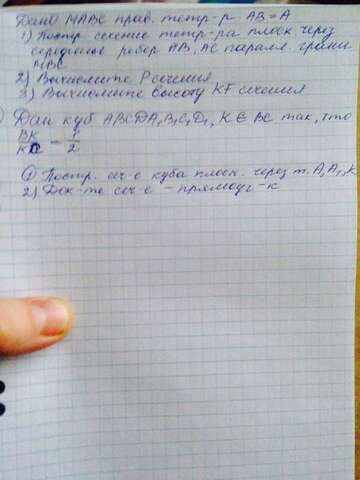 Дано МАВС прав. тетр-р АВ=А
1) Постр. сечение тетр-ра плоск. через
середины ребер АВ, АС паралл. грани
МВС
2) Вычислите Р сечения
3) Вычислите высоту KF сечения
Дан куб ABCDA₁B₁C₁D₁, K ∈ BC так, что
BK/KC = 1/2
1) Постр. сеч-е куба плоск. через т. А, А₁, К
2) Док-те сеч-е – прямоуг-к